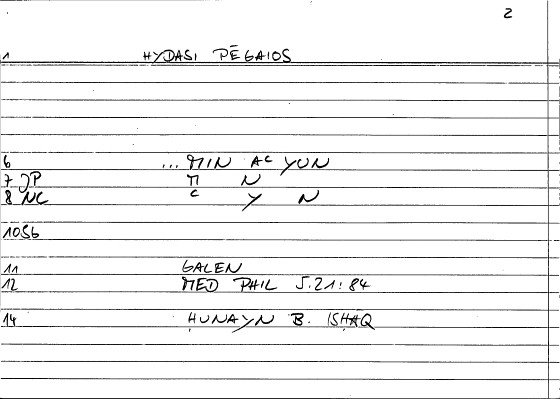 2
1 HYDASI PĒGAIOS
6 ... MIN AC YUN
7 JP M N
8 NC C Y N
10SG
11 GALEN
12 MED PHIL 5.21:84
14 ḤUNAYN B. ISHAQ